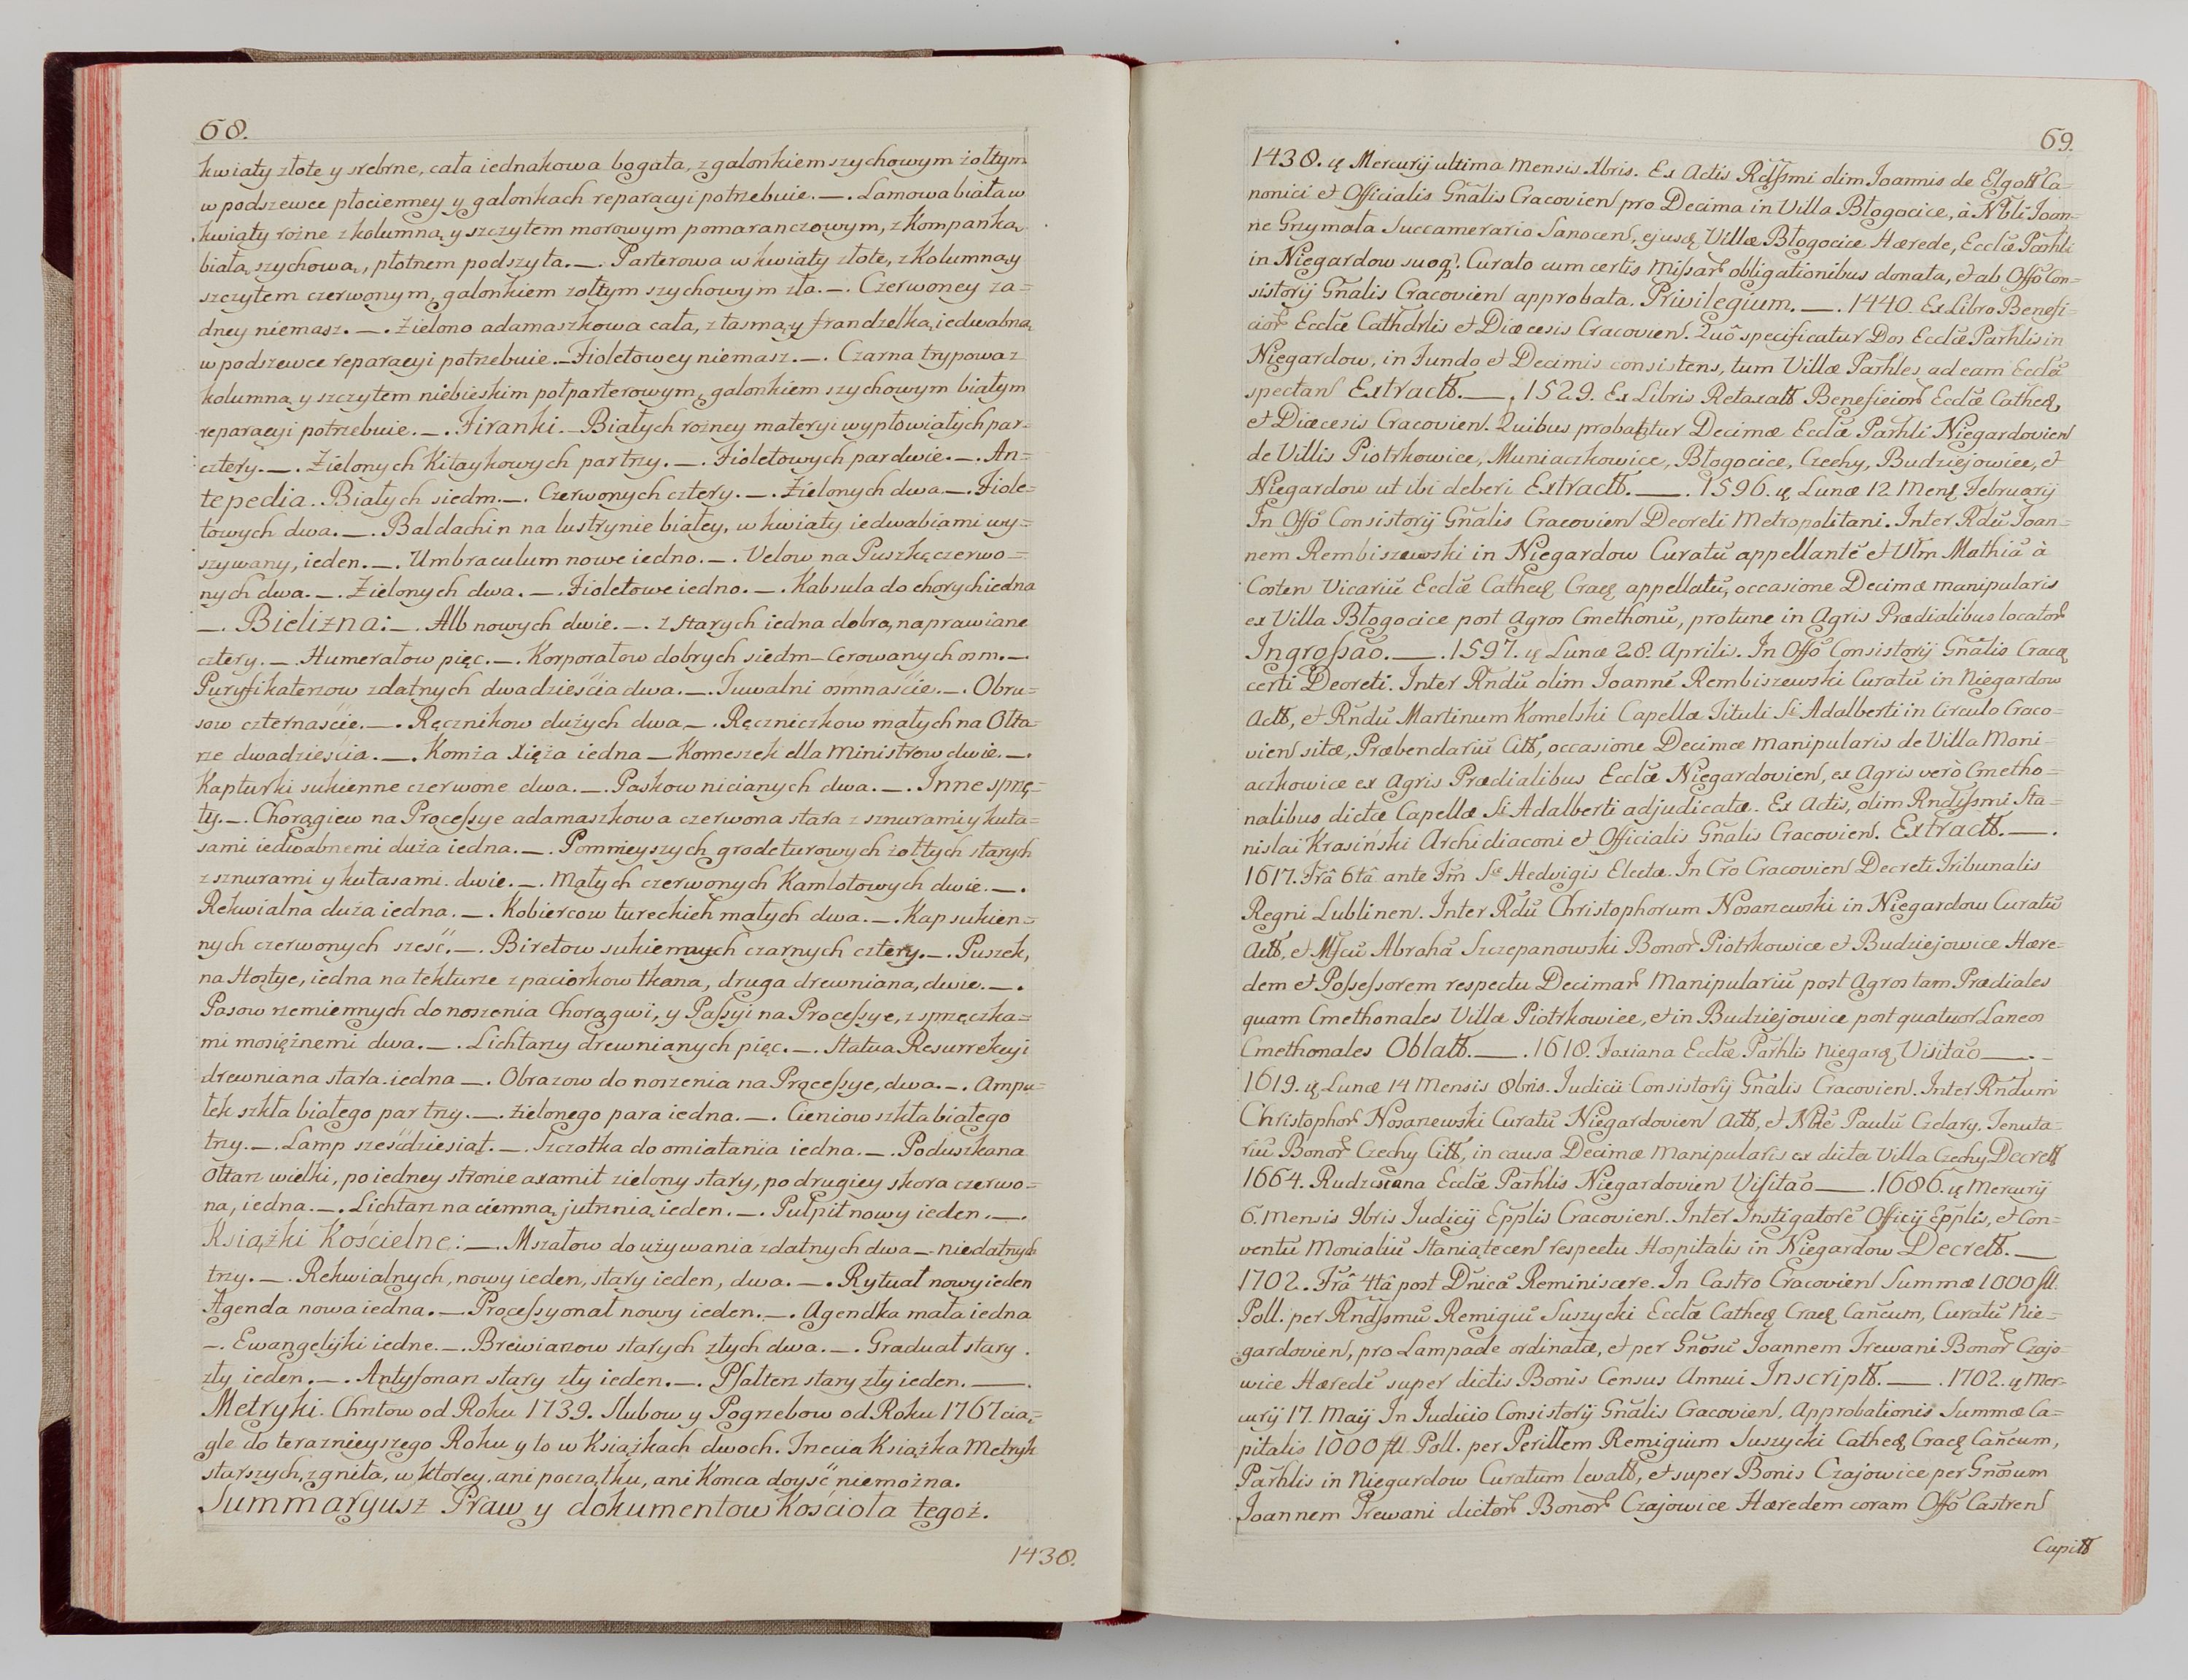 68.
kwiaty złote y srebrne, cała iednakowa bogata, z galonkiem szychowym żołtym
w podszewce płocienney y galonkach reparacyi potrzebuie. —. Lamowa biała w
kwiaty rożne z kolumną y szczytem morowym pomaranczowym, z Kompanką
białą szychową, płotnem podszyta. —. Parterowa w kwiaty złote, z Kolumną y
szczytem czerwonym, galonkiem żołtym szychowym zła. —. Czerwoney ża=
dney niemasz. —. Zielono adamaszkowa cała, z taśmą y frandzelką iedwabną
w podszewce reparacyi potrzebuie. — Fioletowey niemasz. —. Czarna trypowa z
kolumną y szczytem niebieskim połparterowym, galonkiem szychowym białym
reparacyi potrzebuie. —. Firanki. — Białych rożney materyi wypłowiałych par
cztery. —. Zielonych Kitaykowych par trzy. —. Fioletowych par dwie. —. An=
tepedia. Białych siedm. —. Czerwonych cztery. —. Zielonych dwa. —. Fiole=
towych dwa. —. Baldachin na lustrynie białey, w kwiaty iedwabiami wy=
szywany, ieden. —. Umbraculum nowe iedno. —. Velow na Puszkę czerwo=
nych dwa. —. Zielonych dwa. —. Fioletowe iedno. —. Kabsula do chorych iedna
—. Bielizna: —. Alb nowych dwie. —. z starych iedna dobra, naprawiane
cztery. —. Humerałow pięc. —. Korporałow dobrych siedm — Cerowanych osm. —.
Puryfikaterzow zdatnych dwadzieścia dwa. —. Tuwalni ośmnaście. —. Obru=
sow czternaście. —. Ręcznikow dużych dwa. —. Ręczniczkow małych na Ołta=
rze dwadzieścia. —. Komża xięża iedna — Komeszek dlla Ministrow dwie. —.
Kapturki sukienne czerwone dwa. —. Paskow nicianych dwa. —. Inne sprzę=
ty. —. Chorągiew na Processye adamaszkowa czerwona stara z sznurami y kuta=
sami iedwabnemi duża iedna. —. Pomnieyszych grodeturowych żołtych starych
z sznurami y kutasami dwie. —. Małych czerwonych Kamlotowych dwie. —.
Rekwialna duża iedna. —. Kobiercow tureckich małych dwa. —. Kap sukien=
nych czerwonych sześć. —. Biretow sukiennych czarnych cztery. —. Puszek,
na Hostye, iedna na tekturze z paciorkow tkana, druga drewniana, dwie. —.
Pasow rzemiennych do noszenia Chorągwi, y Passyi na Processye, z sprzęczka=
mi mosiężnemi dwa. —. Lichtarzy drewnianych pięc. —. Statua Resurrekcyi
drewniana stara iedna —. Obrazow do noszenia na Processye, dwa. —. Ampu=
łek szkła białego par trzy. —. Zielonego para iedna. —. Cieniow szkła białego
trzy. —. Lamp sześćdziesiąt. —. Szczotka do omiatania iedna. —. Poduszka na
Ołtarz wielki, po iedney stronie axamit zielony stary, po drugiey skora czerwo=
na, iedna. —. Lichtarz na ciemną jutrznią ieden. —. Pulpit nowy ieden. —.
Książki Kościelne: —. Mszałow do używania zdatnych dwa —. niedatnych
trzy. —. Rekwialnych, nowy ieden, stary ieden, dwa. —. Rytuał nowy ieden
Agenda nowa iedna. —. Processyonał nowy ieden. —. Agendka mała iedna
—. Ewangelijki iedne. —. Brewiarzow starych złych dwa. —. Graduał stary
zły ieden. —. Antyfonarz stary zły ieden. —. Psałterz stary zły ieden. —.
Metryki. Chrztow od Roku 1739. Slubow y Pogrzebow od Roku 1767 cią=
gle do teraznieyszego Roku y to w Książkach dwoch. Trzecia Książka Metryk
starszych, zgniła, w ktorey ani początku, ani Konca doyść niemożna.
Summaryusz Praw y dokumentow Kościoła tegoż.
1438.
69.
1438. ię Mercurij ultima Mensis Xbris. Ex Actis Rdssmi olim Joannis de Elgott Ca=
nonici et Officialis Gnãlis Cracovien pro Decima in Villa Błogocice, à Nbli Joan=
ne Grzymała Succamerario Sanocen, ejusq Villæ Błogocice Hærede, Ecclæ Parhli
in Niegardow suoq. Curato cum certis Missar obligationibus donata, et ab Offo Con=
sistorij Gnãlis Cracovien approbata. Privilegium. —. 1440. Ex Libro Benefi=
cior Ecclæ Cathdrlis et Diæcesis Cracovien. Quô specificatur Dos Ecclæ Parhlis in
Niegardow, in Fundo et Decimis consistens, tum Villæ Parhles ad eam Ecclã
spectan Extractt. —. 1529. Ex Libris Retaxatt Beneficior Ecclæ Cathed,
et Diæcesis Cracovien. Quibus probatur Decimæ Ecclæ Parhli Niegardovien
de Villis Piotrkowice, Muniaczkowice, Błogocice, Czechy, Budziejowice, et
Niegardow ut ibi deberi Extractt. —. 1596. ię Lunæ 12 Mens Februarij
In Offo Consistorij Gnãlis Cracovien Decreti Metropolitani. Inter Rdũ Joan=
nem Rembiszewski in Niegardow Curatũ appellantẽ et Vlm Mathiã à
Costen Vicariũ Ecclæ Cathed Crac appellatũ, occasione Decimæ manipularis
ex Villa Błogocice post Agros Cmethonũ, protunc in Agris Prædialibus locator
Ingrossaõ. —. 1597. ię Lunæ 28. Aprilis. In Offo Consistorij Gnãlis Crac
certi Decreti. Inter Rndũ olim Joannẽ Rembiszewski Curatũ in Niegardow
Actt, et Rndũ Martinum Komelski Capellæ Tituli Sti Adalberti in Circulo Craco=
vien sitæ, Præbendariũ Citt, occasione Decimæ manipularis de Villa Moni=
aczkowice ex Agris Prædialibus Ecclæ Niegardovien, ex Agris verò Cmetho=
nalibus dictæ Capellæ Sti Adalberti adjudicatæ. Ex Actis, olim Rndssmi Sta=
nislai Krasiński Archidiaconi et Officialis Gnãlis Cracovien. Extractt. —.
1617. Frâ 6tâ ante Fm Stæ Hedvigis Electæ. In Cro Cracovien Decreti Tribunalis
Regni Lublinen. Inter Rdũ Christophorum Nosarzewski in Niegardow Curatũ
Actt, et Mfcũ Abrahã Szczepanowski Bonor Piotrkowice et Budziejowice Hære=
dem et Possessorem respectu Decimar Manipulariũ post Agros tam Prædiales
quam Cmethonales Villæ Piotrkowice, et in Budziejowice post quatuor Laneos
Cmethonales Oblatt. —. 1618. Foxiana Ecclæ Parhlis Niegard, Visitaõ —.
1619. ię Lunæ 14 Mensis 8bris. Judicii Consistorij Gnãlis Cracovien. Inter Rndum
Christophor Nosarzewski Curatũ Niegardovien Actt, et Nblẽ Paulũ Czelary, Tenuta=
riũ Bonor Czechy Citt, in causa Decimæ Manipularis ex dicta Villa Czechy Decrett
1664. Rudzciana Ecclæ Parhlis Niegardovien Visitaõ —. 1686. ię Mercurij
6. Mensis 9bris Judicij Epplis Cracovien. Inter Instigatorẽ Officij Epplis, et Con=
ventũ Monialiũ Staniątecen respectu Hospitalis in Niegardow Decrett. —
1702. Frâ 4tâ post Dnicã Reminiscere. In Castro Cracovien Summæ 1000 fll.
Poll. per Rndssmũ Remigiũ Suszycki Ecclæ Cathed Crac Cañcum, Curatũ Nie=
gardovien, pro Lampade ordinatæ, et per Gñosũ Joannem Trewani Bonor Czajo=
wice Hæredẽ super dictis Bonis Census Annui Inscriptt. —. 1702. ię Mer=
curij 17. Maij In Judicio Consistorij Gnãlis Cracovien. Approbationis Summæ Ca=
pitalis 1000 fll Poll. per Perillem Remigium Suszycki Cathed Crac Cañcum,
Parhlis in Niegardow Curatum levatt, et super Bonis Czajowice per Gñosum
Joannem Trewani dictor Bonor Czajowice Hæredem coram Offo Castren
Capitt